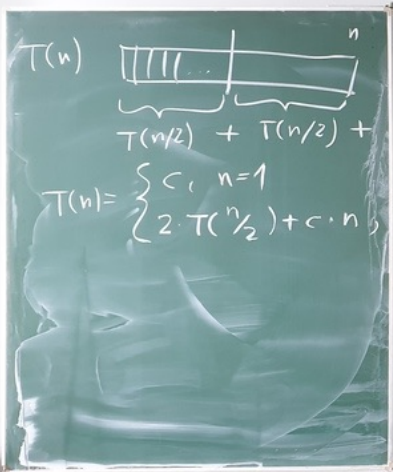 T(n) ... n
T(n/2) + T(n/2) +
T(n)= { c, n=1
2·T(n/2)+c·n,